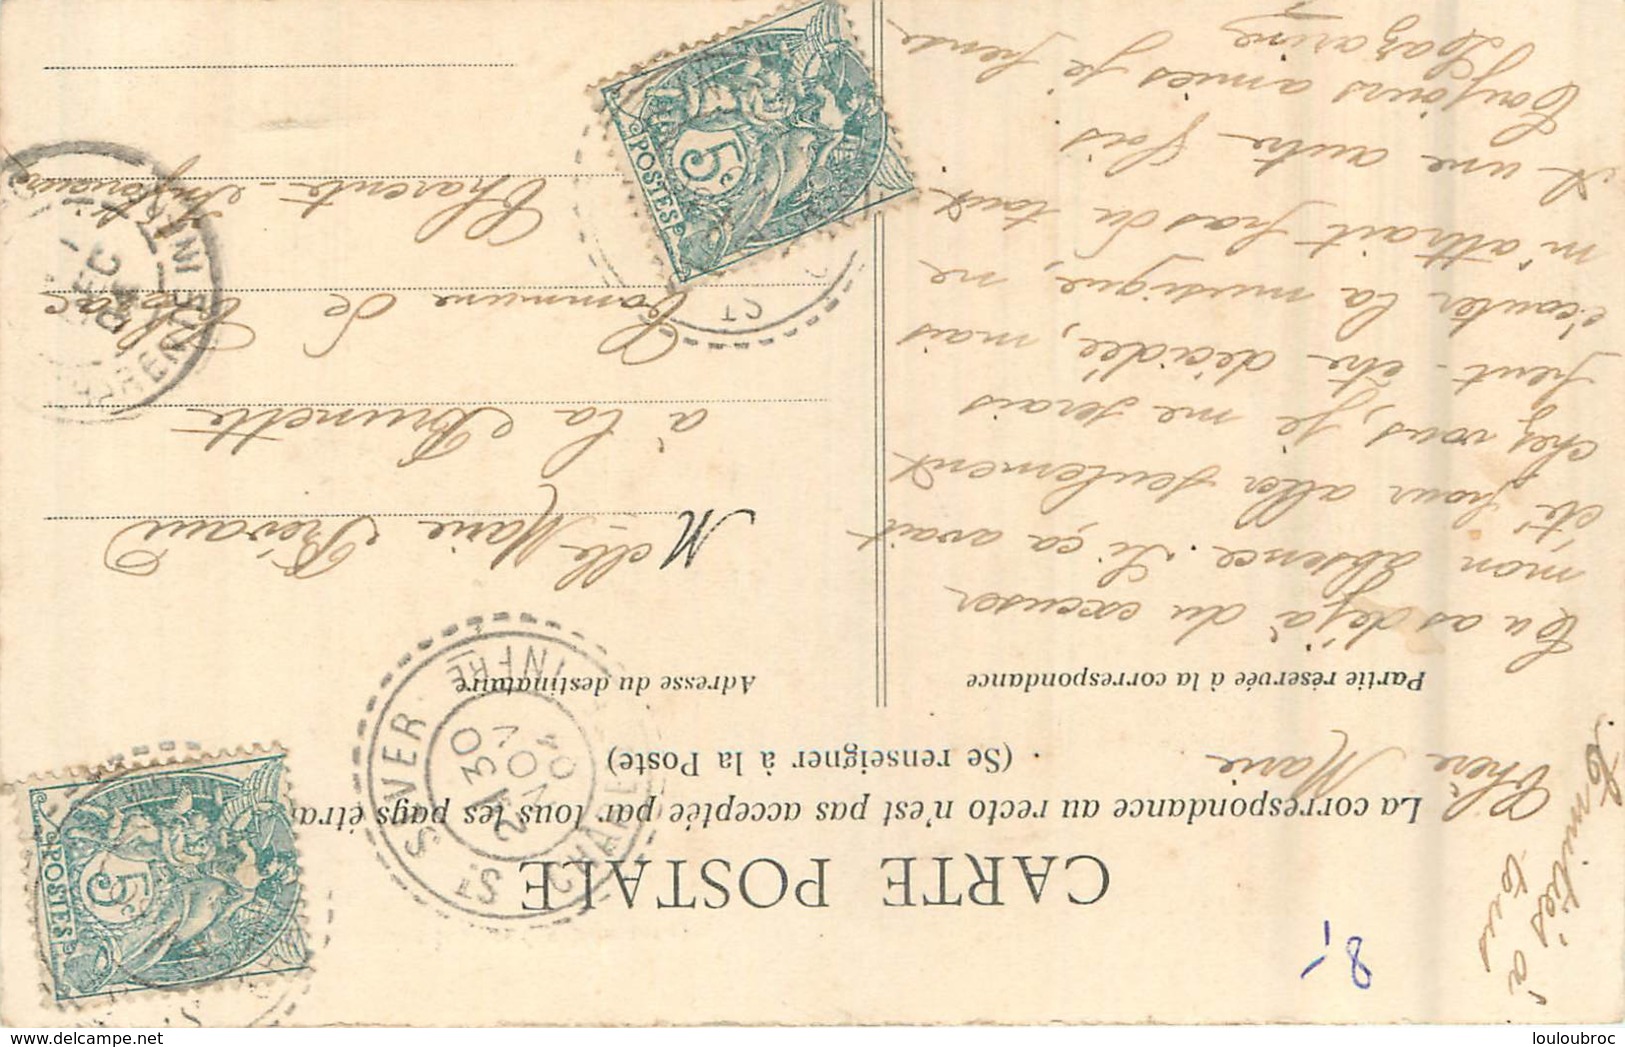 CARTE POSTALE
La correspondance au recto n'est pas acceptée par tous les pays étra
(Se renseigner à la Poste)
Partie réservée à la correspondance
Adresse du destinataire
Chère Marie
Tu as déjà du excuser
mon absence. Si ça avait
été pour aller seulement
chez vous, je me serais
peut-être décidée, mais
écouter la musique, ne
m'attrait pas du tout
et une autre fois
Toujours amies je pense
Lazarine
Amitiés à
tous
Melle Marie Prévaud
à la Brunette
Commune de
Charente-Inférieure
POSTES
5c
POSTES
5c
ST SEVER
CHARENTE INFRE
30
NOV
04
DEC
CHARENTE INFRE
ST
8,-
louloubroc